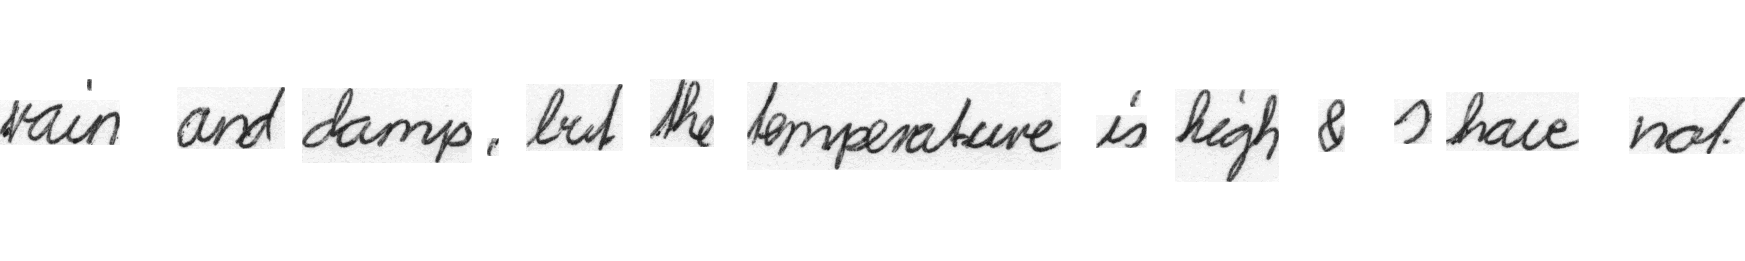 rain and damp, but the temperature is high & I have not